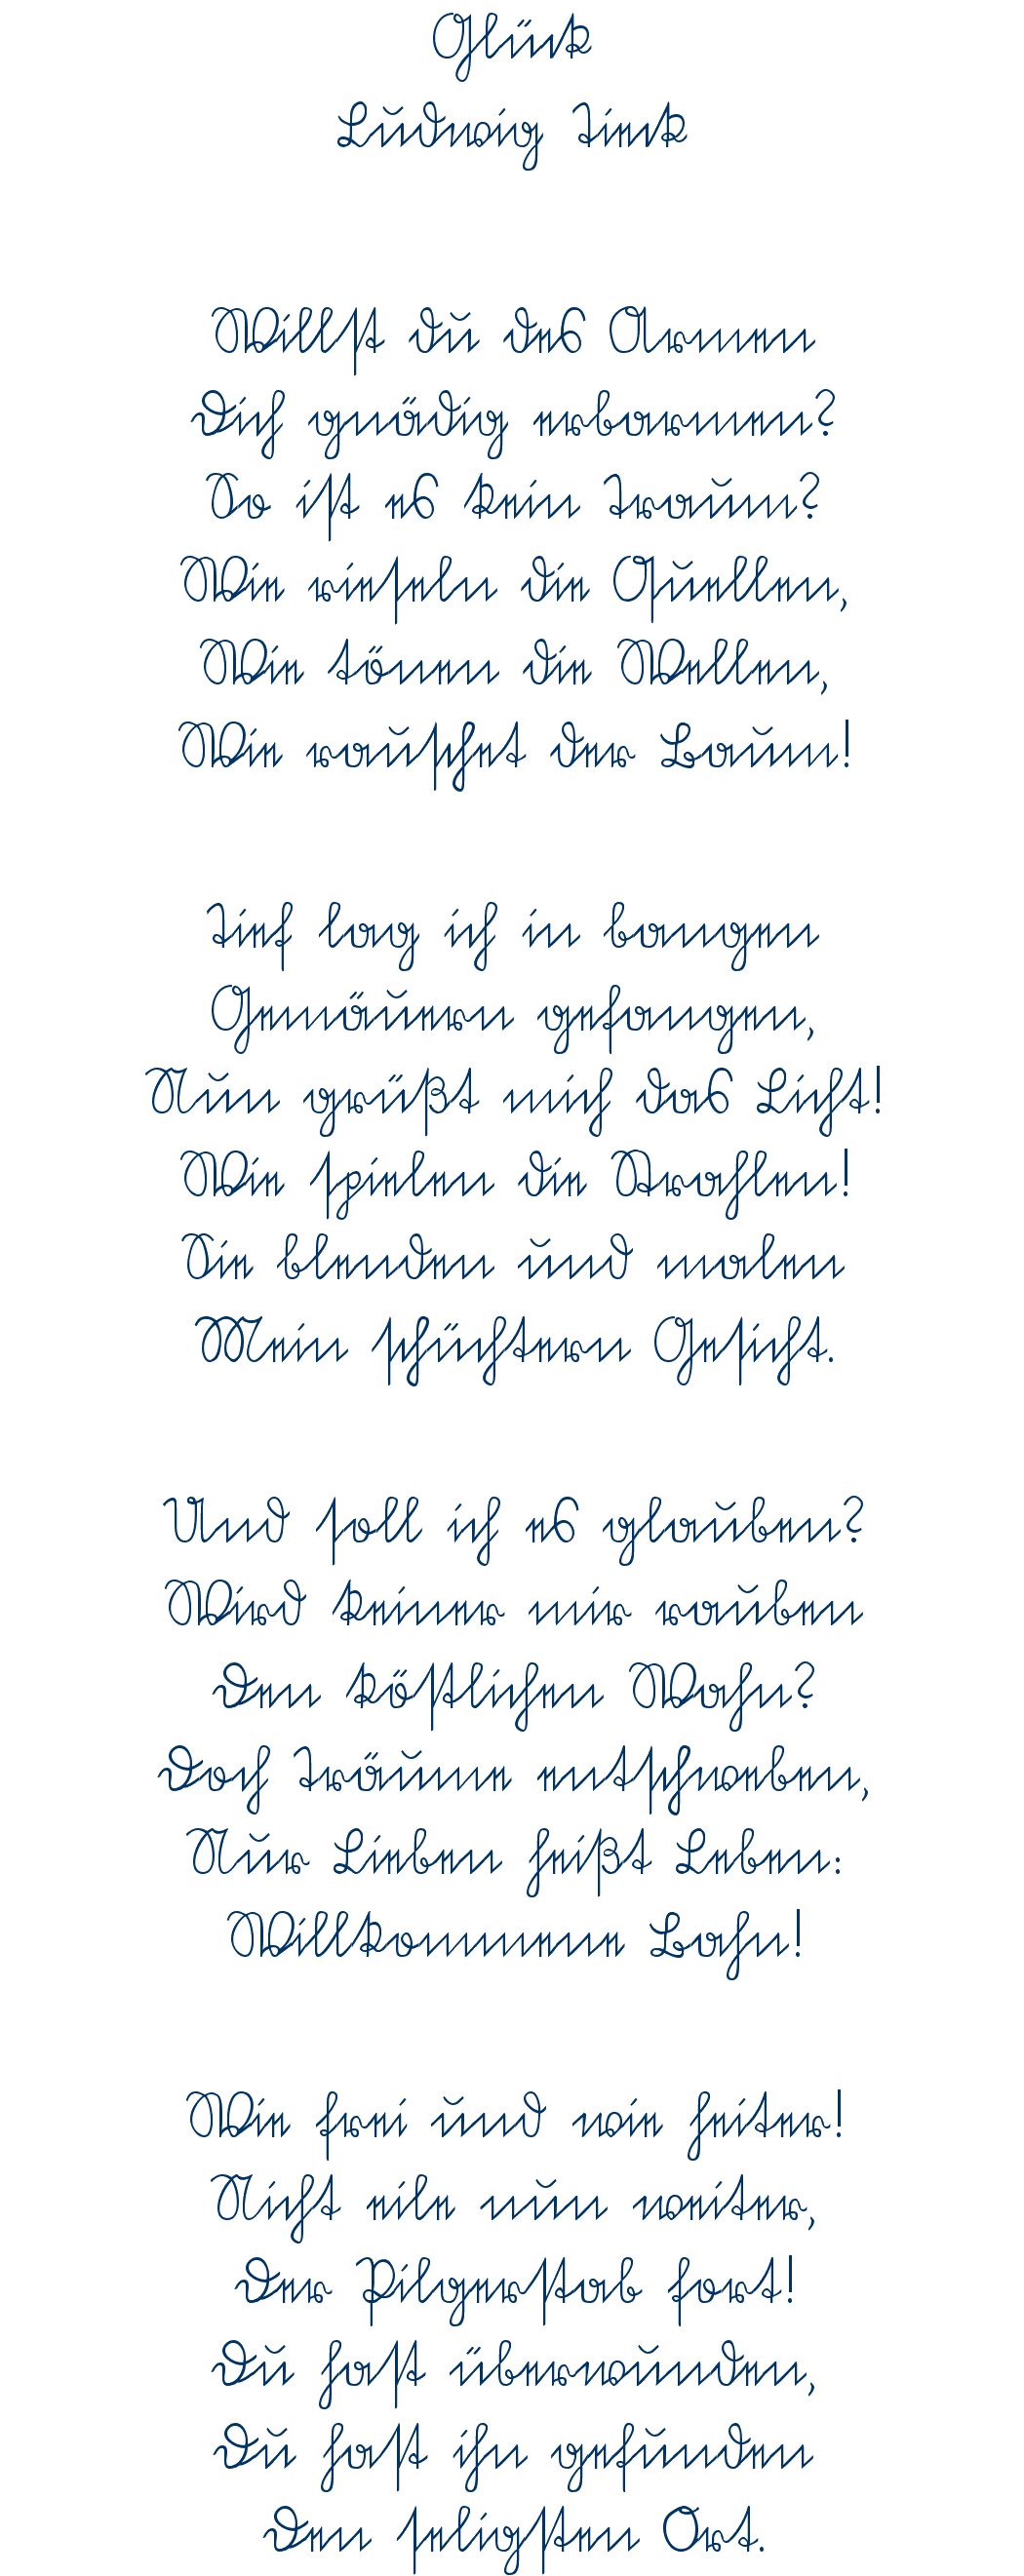 Glück
Ludwig Tieck
Willst du des Armen
Dich gnädig erbarmen?
So ist es kein Traum?
Wie rieseln die Quellen,
Wie tönen die Wellen,
Wie rauschet der Baum!
Tief lag ich in bangen
Gemäuern gefangen,
Nun grüßt mich das Licht!
Wie spielen die Strahlen!
Sie blenden und malen
Mein schüchtern Gesicht.
Und soll ich es glauben?
Wird keiner mir rauben
Den köstlichen Wahn?
Doch Träume entschweben,
Nur Lieben heißt Leben:
Willkommene Bahn!
Wie frei und wie heiter!
Nicht eile nun weiter,
Der Pilgerstab fort!
Du hast überwunden,
Du hast ihn gefunden
Den seligsten Ort.